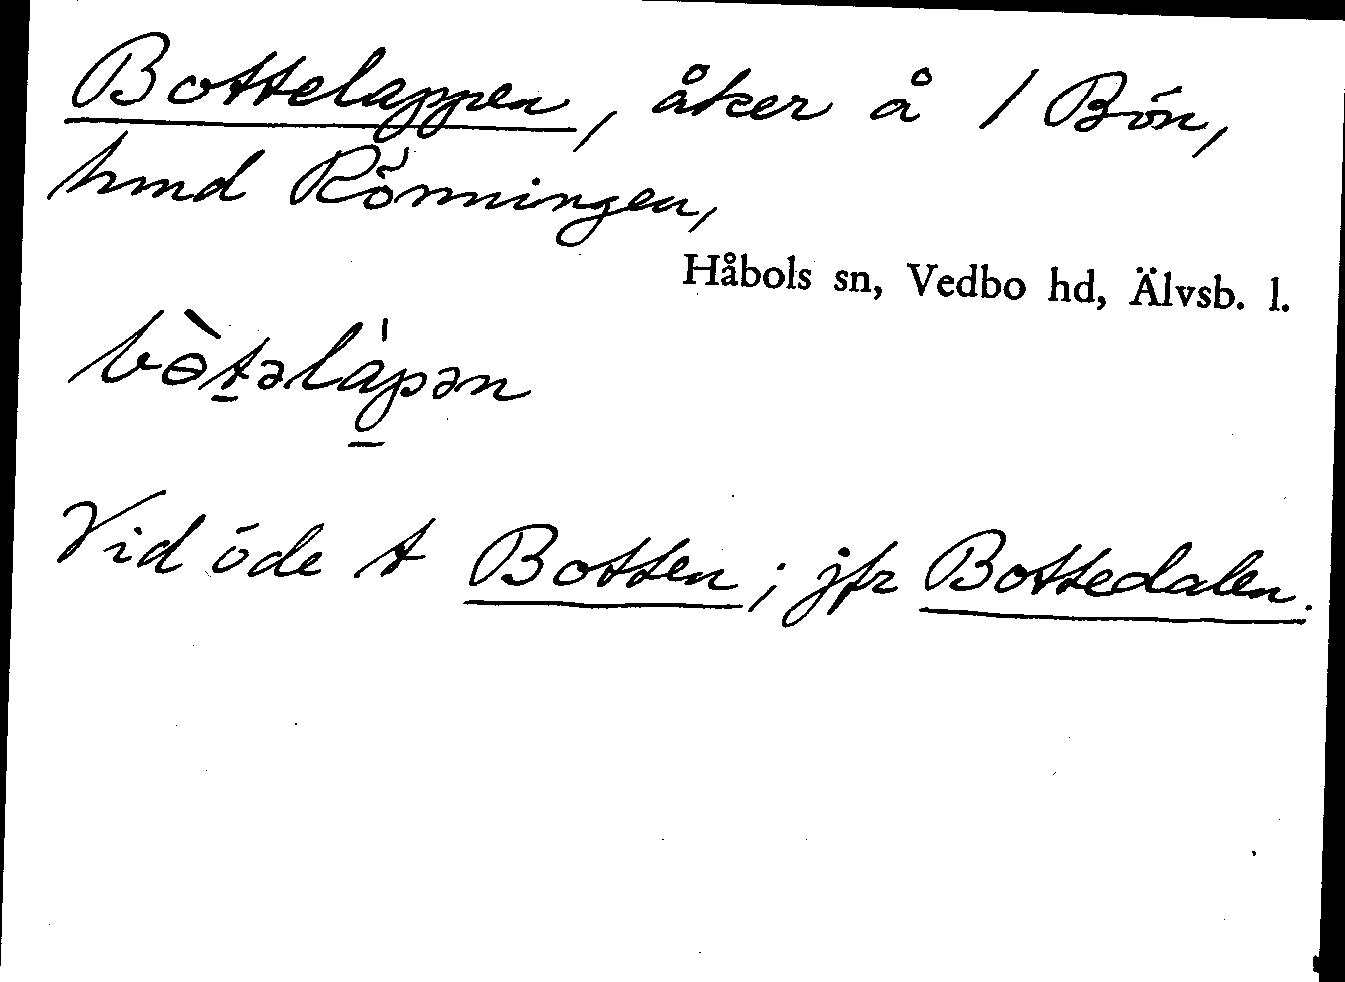 Bottelappen, åker å 1 Bön,
hmd Rönningen,
Håbols sn, Vedbo hd, Älvsb. l.
bòt̲əláp̲ən
Vid öde t Botten; jfr Bottedalen.